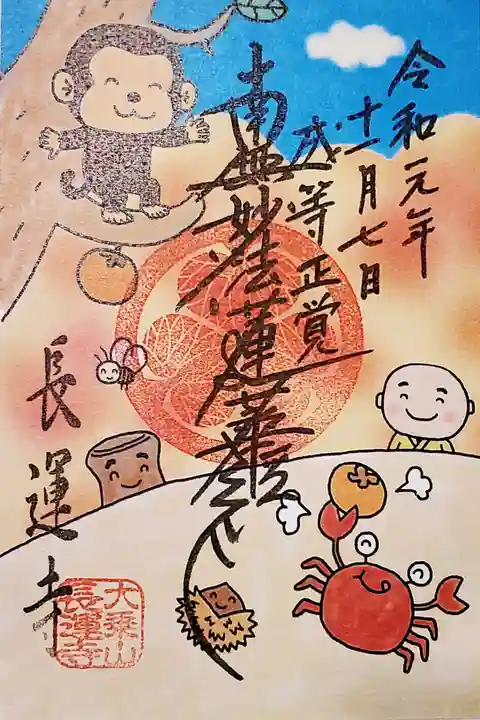 令和元年
十一月七日
成等正覚
南無妙法蓮華経
長運寺
大乗山
長運寺